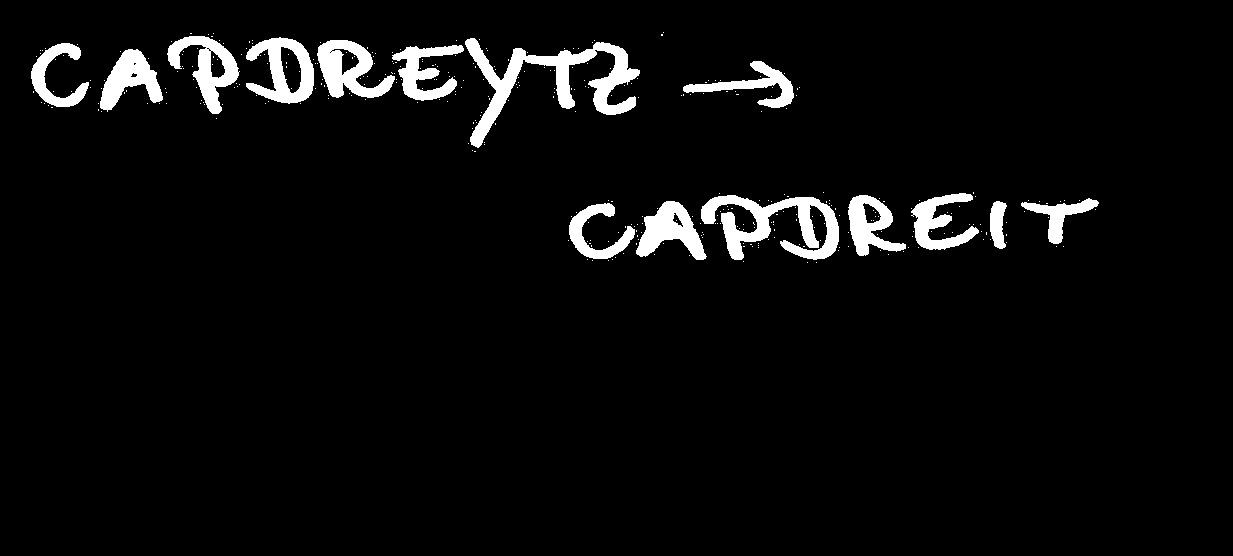 CAPDREYTZ →
CAPDREIT